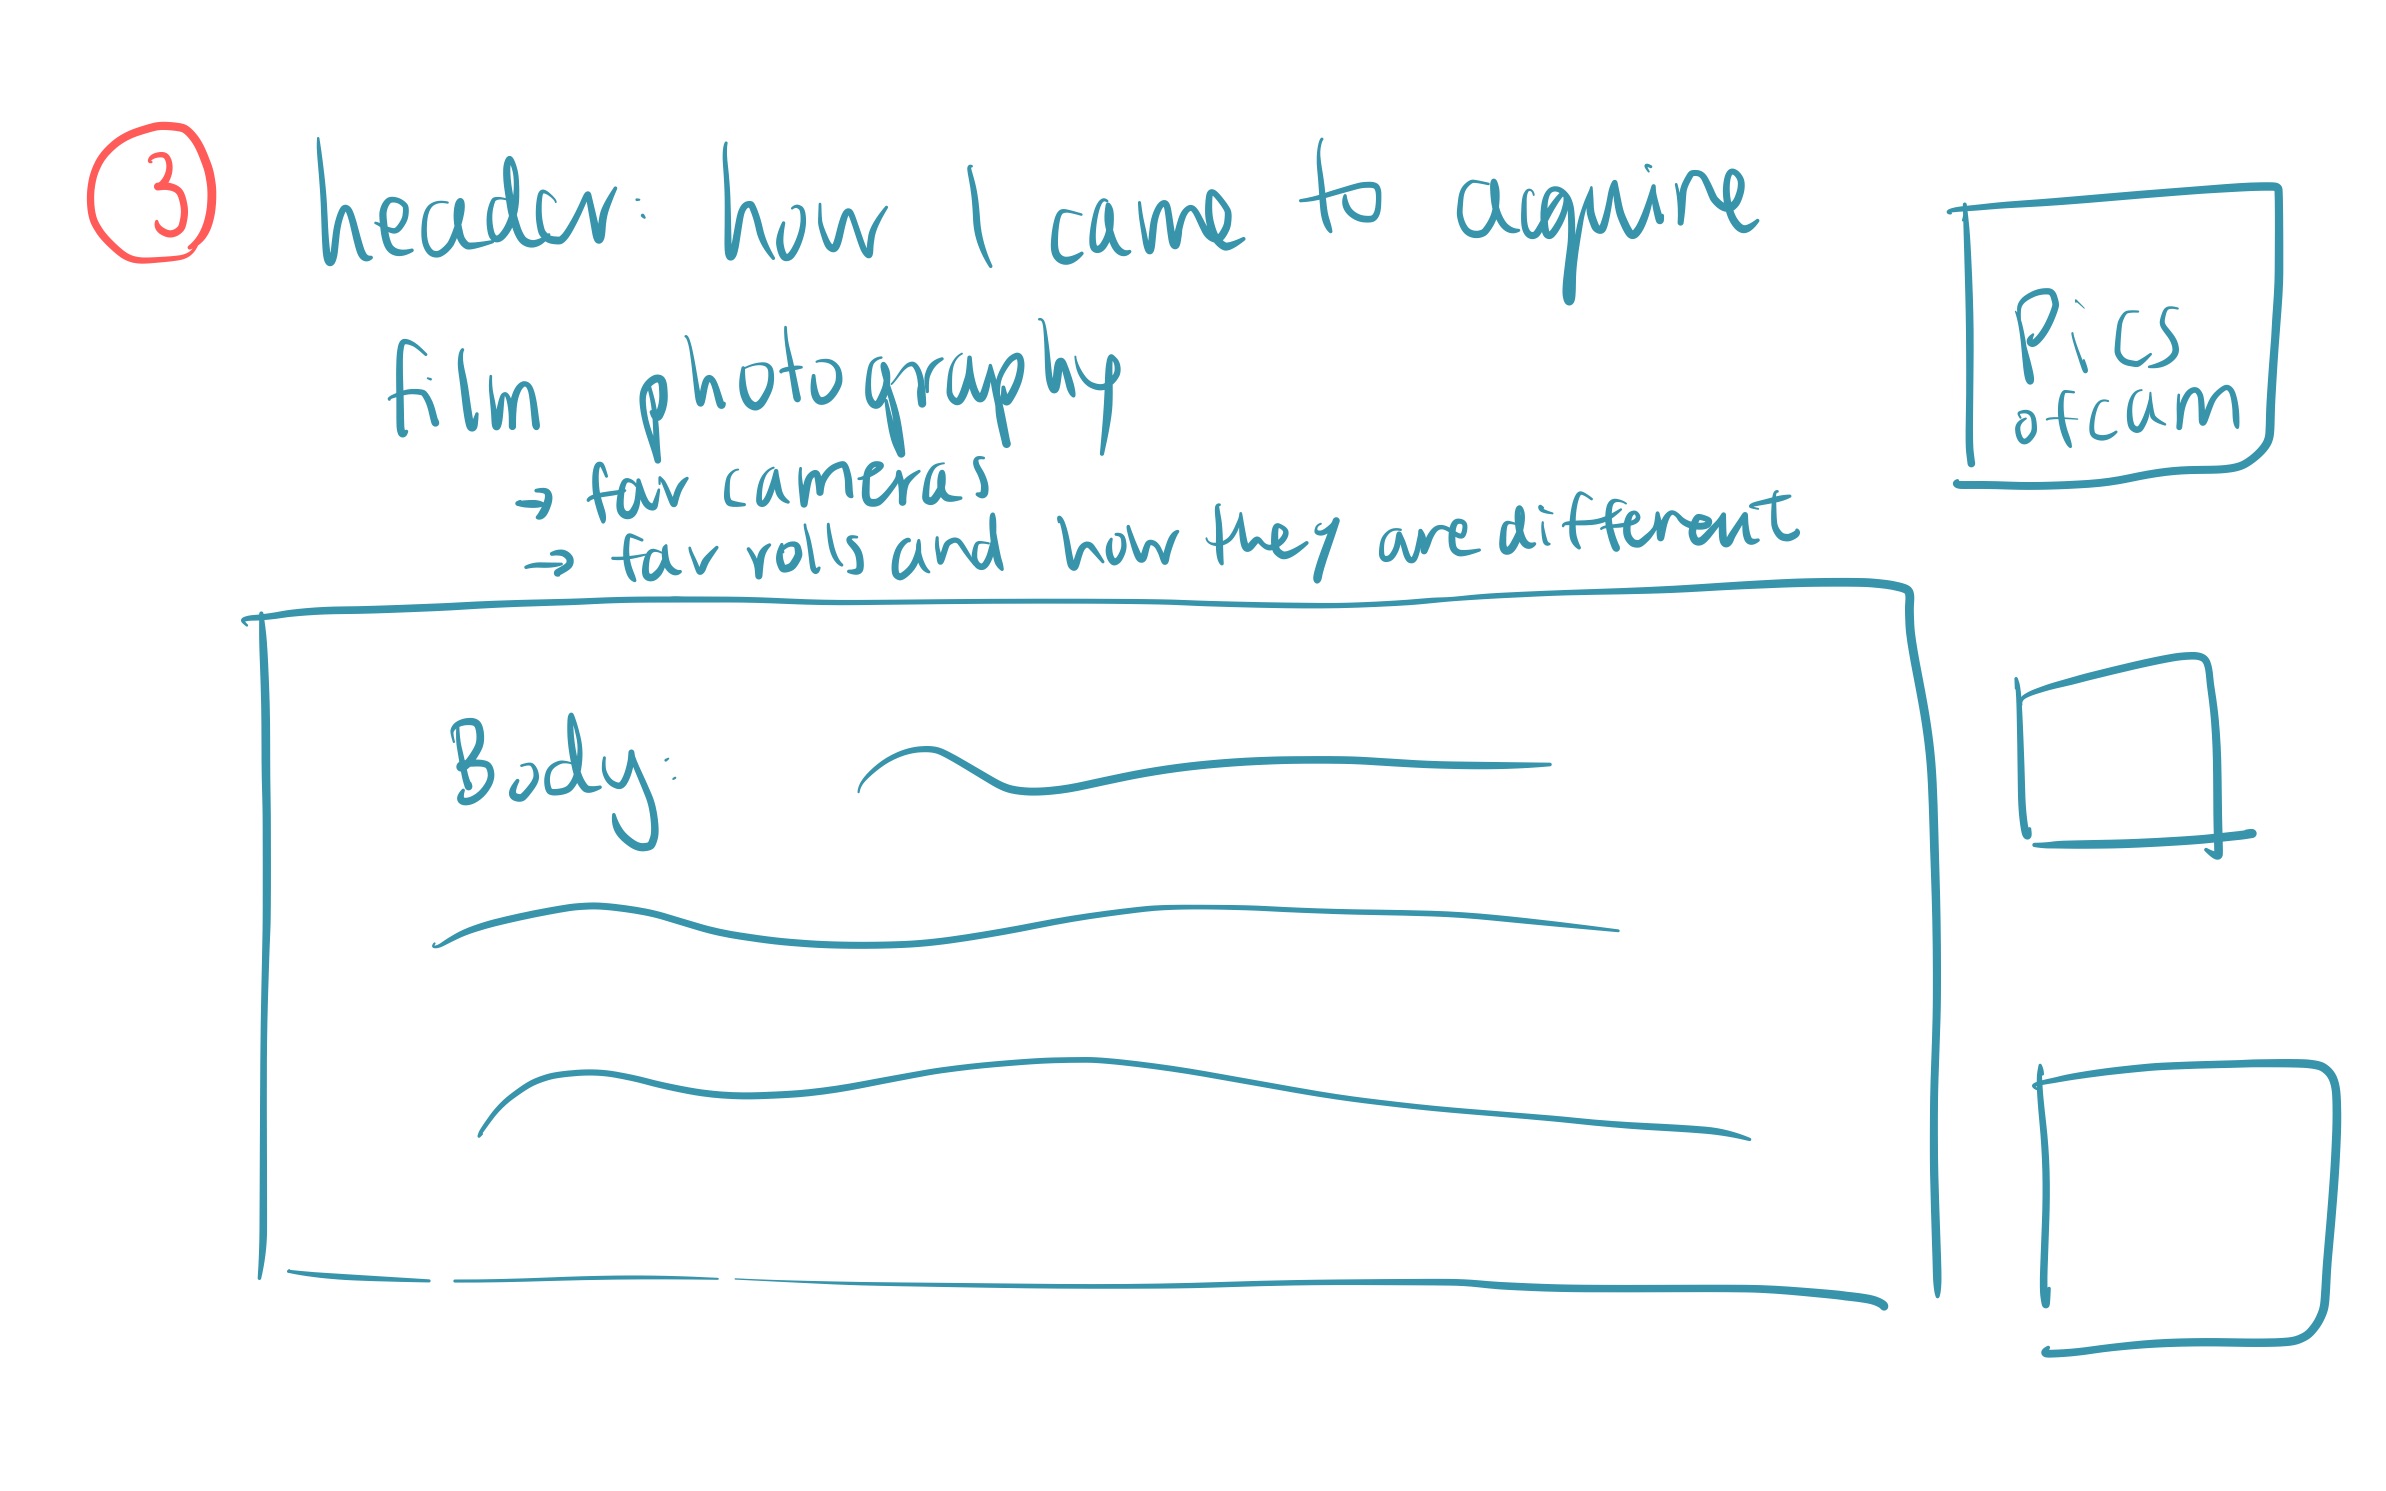 3
header: how I came to aqwire
film photography
→ fav cameras
→ fav rolls and how they are different
Pics
of cam
Body: